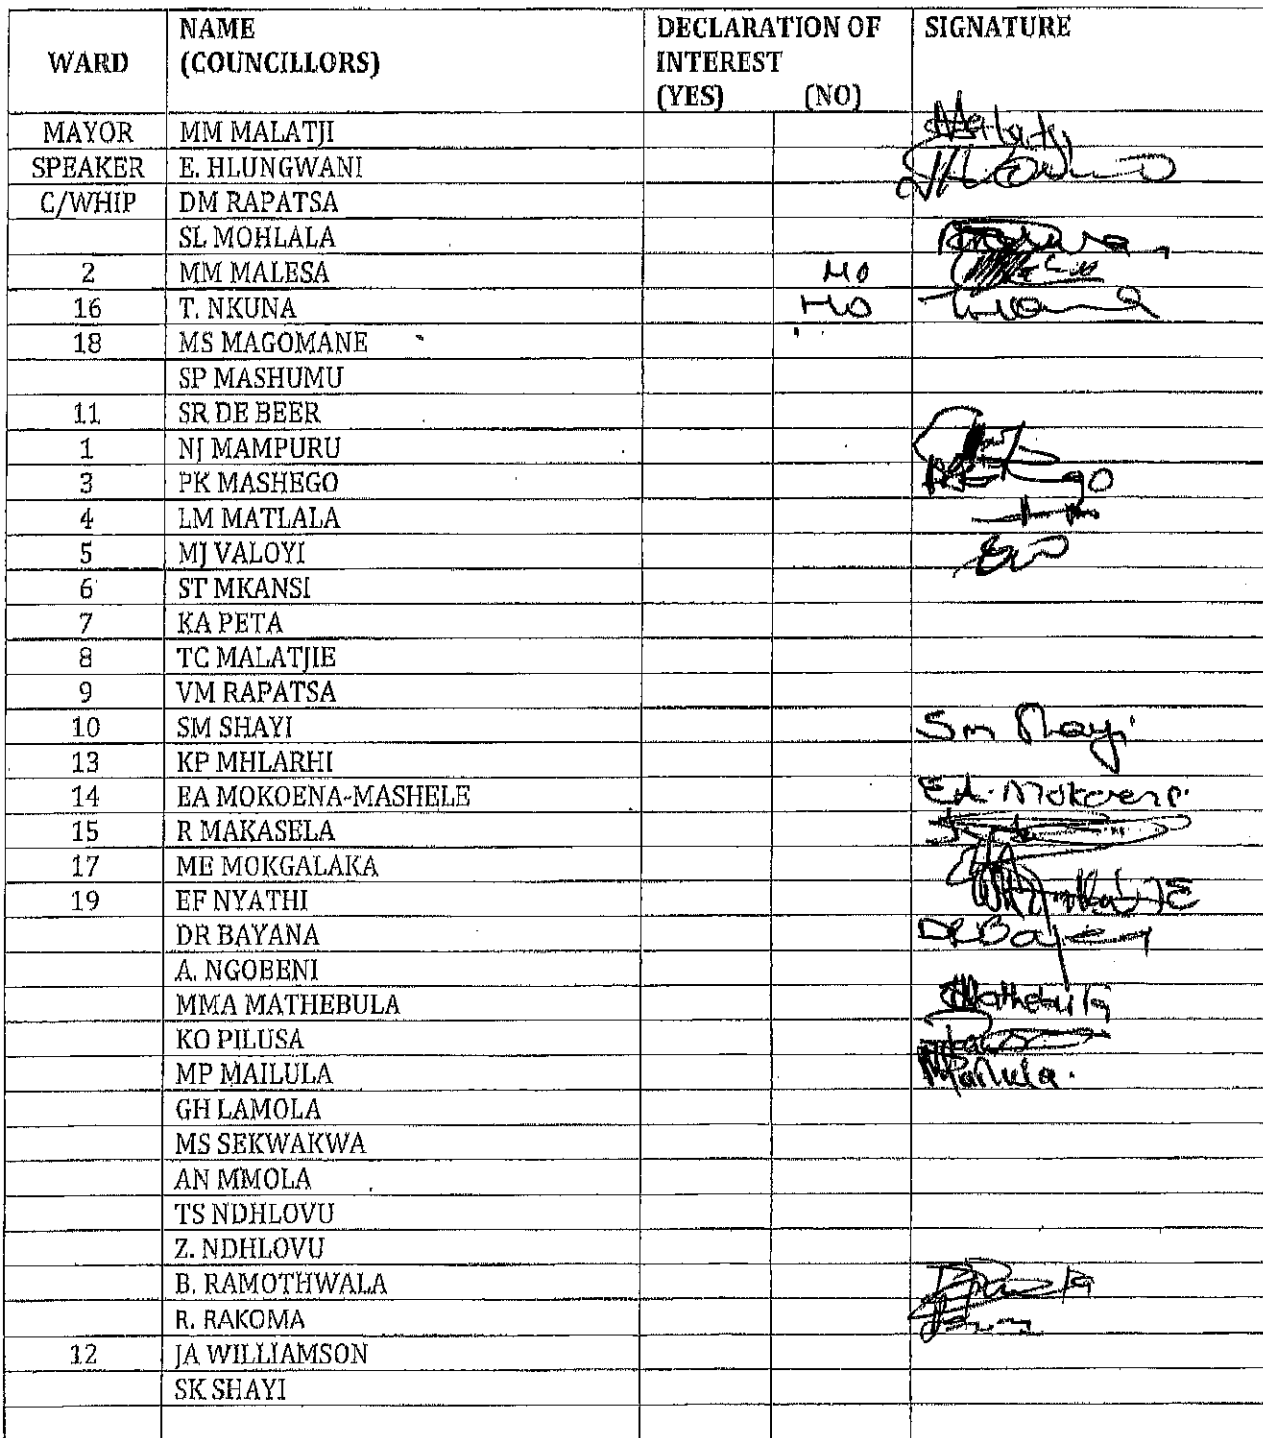 WARD NAME (COUNCILLORS) DECLARATION OF INTEREST (YES) (NO) SIGNATURE
MAYOR MM MALATJI Malatji
SPEAKER E. HLUNGWANI
C/WHIP DM RAPATSA
SL MOHLALA
2 MM MALESA NO
16 T. NKUNA NO
18 MS MAGOMANE
SP MASHUMU
11 SR DE BEER
1 NJ MAMPURU
3 PK MASHEGO
4 LM MATLALA
5 MJ VALOYI
6 ST MKANSI
7 KA PETA
8 TC MALATJIE
9 VM RAPATSA
10 SM SHAYI Sm Shayi
13 KP MHLARHI
14 EA MOKOENA-MASHELE EA. Mokoena
15 R MAKASELA
17 ME MOKGALAKA
19 EF NYATHI
DR BAYANA
A. NGOBENI
MMA MATHEBULA Mathebula
KO PILUSA
MP MAILULA
GH LAMOLA
MS SEKWAKWA
AN MMOLA
TS NDHLOVU
Z. NDHLOVU
B. RAMOTHWALA
R. RAKOMA
12 JA WILLIAMSON
SK SHAYI